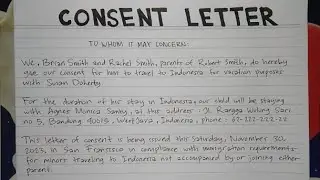 CONSENT LETTER
TO WHOM IT MAY CONCERN:
We, Brian Smith and Rachel Smith, parents of Robert Smith, do hereby
give our consent for him to travel to Indonesia for vacation purposes
with Susan Doherty.
For the duration of his stay in Indonesia, our child will be staying
with Agnes Monica Santoy, at this address: Jl. Rangga Malang Sari
no 5, Bandung 40013, West Java, Indonesia, phone: 62-222-222-22
This letter of consent is being issued this Saturday, November 30,
2023, in San Francisco in compliance with immigration requirements
for minors traveling to Indonesia not accompanied by or joining either
parent.